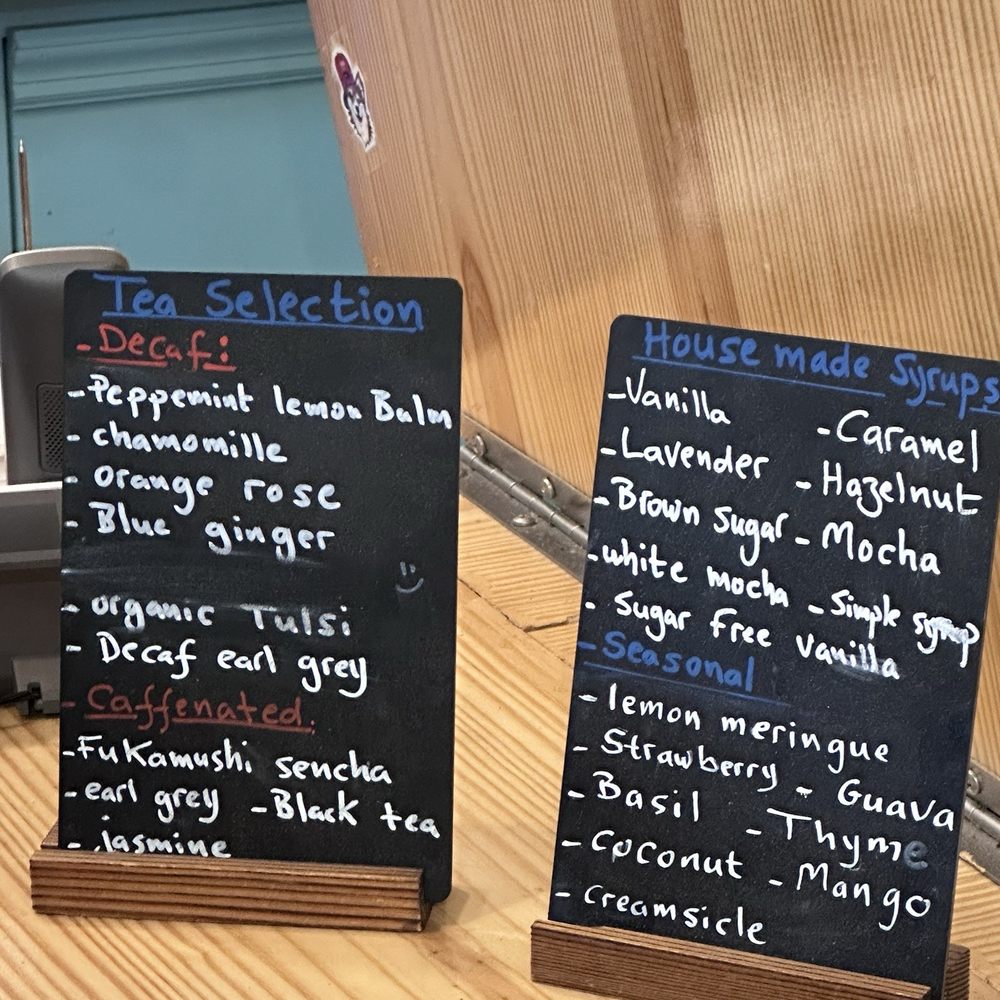 Tea Selection
- Decaf:
- Peppemint lemon Balm
- chamomille
- orange rose
- Blue ginger
- organic Tulsi
- Decaf earl grey
- Caffenated.
- FuKamushi sencha
- earl grey - Black tea
- jasmine
House made Syrups
- Vanilla - Caramel
- Lavender - Hazelnut
- Brown Sugar - Mocha
- white mocha - Simple syrup
- Sugar free vanilla
- Seasonal
- lemon meringue
- Strawberry - Guava
- Basil - Thyme
- coconut - Mango
- creamsicle